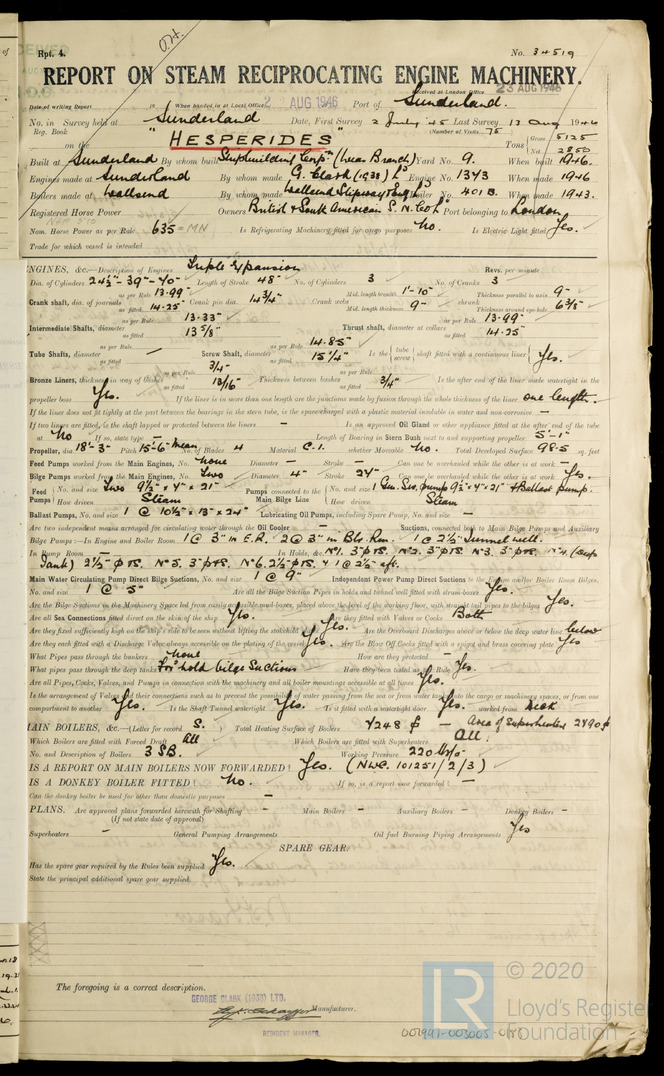 Rpt. 4.
No. 34519
REPORT ON STEAM RECIPROCATING ENGINE MACHINERY.
Received at London Office 23 AUG 1946
Date of writing Report 19 When handed in at Local Office 2 AUG 1946 Port of Sunderland.
No. in Survey held at Sunderland Date, First Survey 2 July '45 Last Survey 13 Aug 1946
Reg. Book (Number of Visits 75
on the "HESPERIDES" Tons Gross 5125 Net 2850
Built at Sunderland By whom built Shipbuilding Corpn (Wear Branch) Yard No. 9. When built 1946.
Engines made at Sunderland By whom made G. Clark (1938) Ld Engine No. 1343 When made 1946
Boilers made at Wallsend By whom made Wallsend Slipway & Eng Boiler No. 401B. When made 1943.
Registered Horse Power Owners British & South American S. N. Co Ld Port belonging to London
Nom. Horse Power as per Rule 635 = MN Is Refrigerating Machinery fitted for cargo purposes No. Is Electric Light fitted Yes.
Trade for which vessel is intended
ENGINES, &c.—Description of Engines Triple Expansion Revs. per minute
Dia. of Cylinders 24½"-39"-70" Length of Stroke 48" No. of Cylinders 3 No. of Cranks 3
Crank shaft, dia. of journals as per Rule 13.99 as fitted 14.25 Crank pin dia. 14¾" Crank webs Mid. length breadth 1'-10" Mid. length thickness 9" shrunk Thickness parallel to axis 9" Thickness around eye-hole 6⅜"
Intermediate Shafts, diameter as per Rule 13.33" as fitted 13⅝" Thrust shaft, diameter at collars as per Rule 13.99 as fitted 14.25
Tube Shafts, diameter as per Rule — as fitted Screw Shaft, diameter as per Rule 14.85" as fitted 15¼" Is the tube screw shaft fitted with a continuous liner Yes.
Bronze Liners, thickness in way of bushes as per Rule ¾" as fitted 13/16" Thickness between bushes ¾" Is the after end of the liner made watertight in the
propeller boss Yes. If the liner is in more than one length are the junctions made by fusion through the whole thickness of the liner one length.
If the liner does not fit tightly at the part between the bearings in the stern tube, is the space charged with a plastic material insoluble in water and non-corrosive —
If two liners are fitted, is the shaft lapped or protected between the liners — Is an approved Oil Gland or other appliance fitted at the after end of the tube
No If so, state type — Length of Bearing in Stern Bush next to and supporting propeller 5'-1"
Propeller, dia. 18'-3" Pitch 15'-6" Mean No. of Blades 4 Material C.I. whether Moveable No. Total Developed Surface 98.5 sq. feet
Feed Pumps worked from the Main Engines, No. None Diameter — Stroke — Can one be overhauled while the other is at work —
Bilge Pumps worked from the Main Engines, No. Two Diameter 4" Stroke 24" Can one be overhauled while the other is at work Yes.
Feed Pumps No. and size Two 9½" x 7" x 21" How driven Steam Pumps connected to the Main Bilge Line No. and size 1 Gen. Ser. pump 9½" x 7" x 21" + Ballast pump. How driven Steam
Ballast Pumps, No. and size 1 @ 10½" x 13" x 24" Lubricating Oil Pumps, including Spare Pump, No. and size —
Are two independent means arranged for circulating water through the Oil Cooler — Suctions, connected both to Main Bilge Pumps and Auxiliary
Bilge Pumps:—In Engine and Boiler Room 1 @ 3" in E.R. 2 @ 3" in Blr. Rm. 1 @ 2½" Tunnel well.
In Pump Room — In Holds, &c. No1. 3" P&S. No2. 3" P&S No3. 3" P&S. No4. (Deep
Tank) 2½" P&S. No5. 3" P&S. No6. 2½" P&S. & 1 @ 2½" aft.
Main Water Circulating Pump Direct Bilge Suctions, No. and size 1 @ 9" Independent Power Pump Direct Suctions to the Engine and/or Boiler Room Bilges,
No. and size 1 @ 5" Are all the Bilge Suction Pipes in Holds and tunnel well fitted with strum-boxes Yes.
Are the Bilge Suctions in the Machinery Space led from easily accessible mud-boxes, placed above the level of the working floor, with straight tail pipes to the bilges Yes.
Are all Sea Connections fitted direct on the skin of the ship Yes. Are they fitted with Valves or Cocks Both
Are they fixed sufficiently high on the ship's side to be seen without lifting the stokehold plates Yes. Are the Overboard Discharges above or below the deep water line below
Are they each fitted with a Discharge Valve always accessible on the plating of the vessel Yes. Are the Blow Off Cocks fitted with a spigot and brass covering plate Yes
What Pipes pass through the bunkers None How are they protected —
What pipes pass through the deep tanks For'd hold bilge Suctions Have they been tested as per Rule Yes.
Are all Pipes, Cocks, Valves, and Pumps in connection with the machinery and all boiler mountings accessible at all times Yes.
Is the arrangement of Valves and their connections such as to prevent the possibility of water passing from the sea or from water tanks into the cargo or machinery spaces, or from one
compartment to another Yes. Is the Shaft Tunnel watertight Yes. Is it fitted with a watertight door Yes. worked from Deck
MAIN BOILERS, &c.—(Letter for record S.) Total Heating Surface of Boilers 7248 ф — Area of superheater 2490 ф
Which Boilers are fitted with Forced Draft All Which Boilers are fitted with Superheaters All.
No. and Description of Boilers 3 SB. Working Pressure 220 lb/□"
IS A REPORT ON MAIN BOILERS NOW FORWARDED? Yes. (NWC. 101251/2/3)
IS A DONKEY BOILER FITTED? No. If so, is a report now forwarded? —
Can the donkey boiler be used for other than domestic purposes —
PLANS. Are approved plans forwarded herewith for Shafting — Main Boilers — Auxiliary Boilers — Donkey Boilers —
(If not state date of approval)
Superheaters — General Pumping Arrangements Oil fuel Burning Piping Arrangements Yes
SPARE GEAR.
Has the spare gear required by the Rules been supplied Yes.
State the principal additional spare gear supplied
The foregoing is a correct description.
GEORGE CLARK (1938) LTD.
Manufacturer.
RESIDENT MANAGER.
© 2020
LR
Lloyd's Register
Foundation